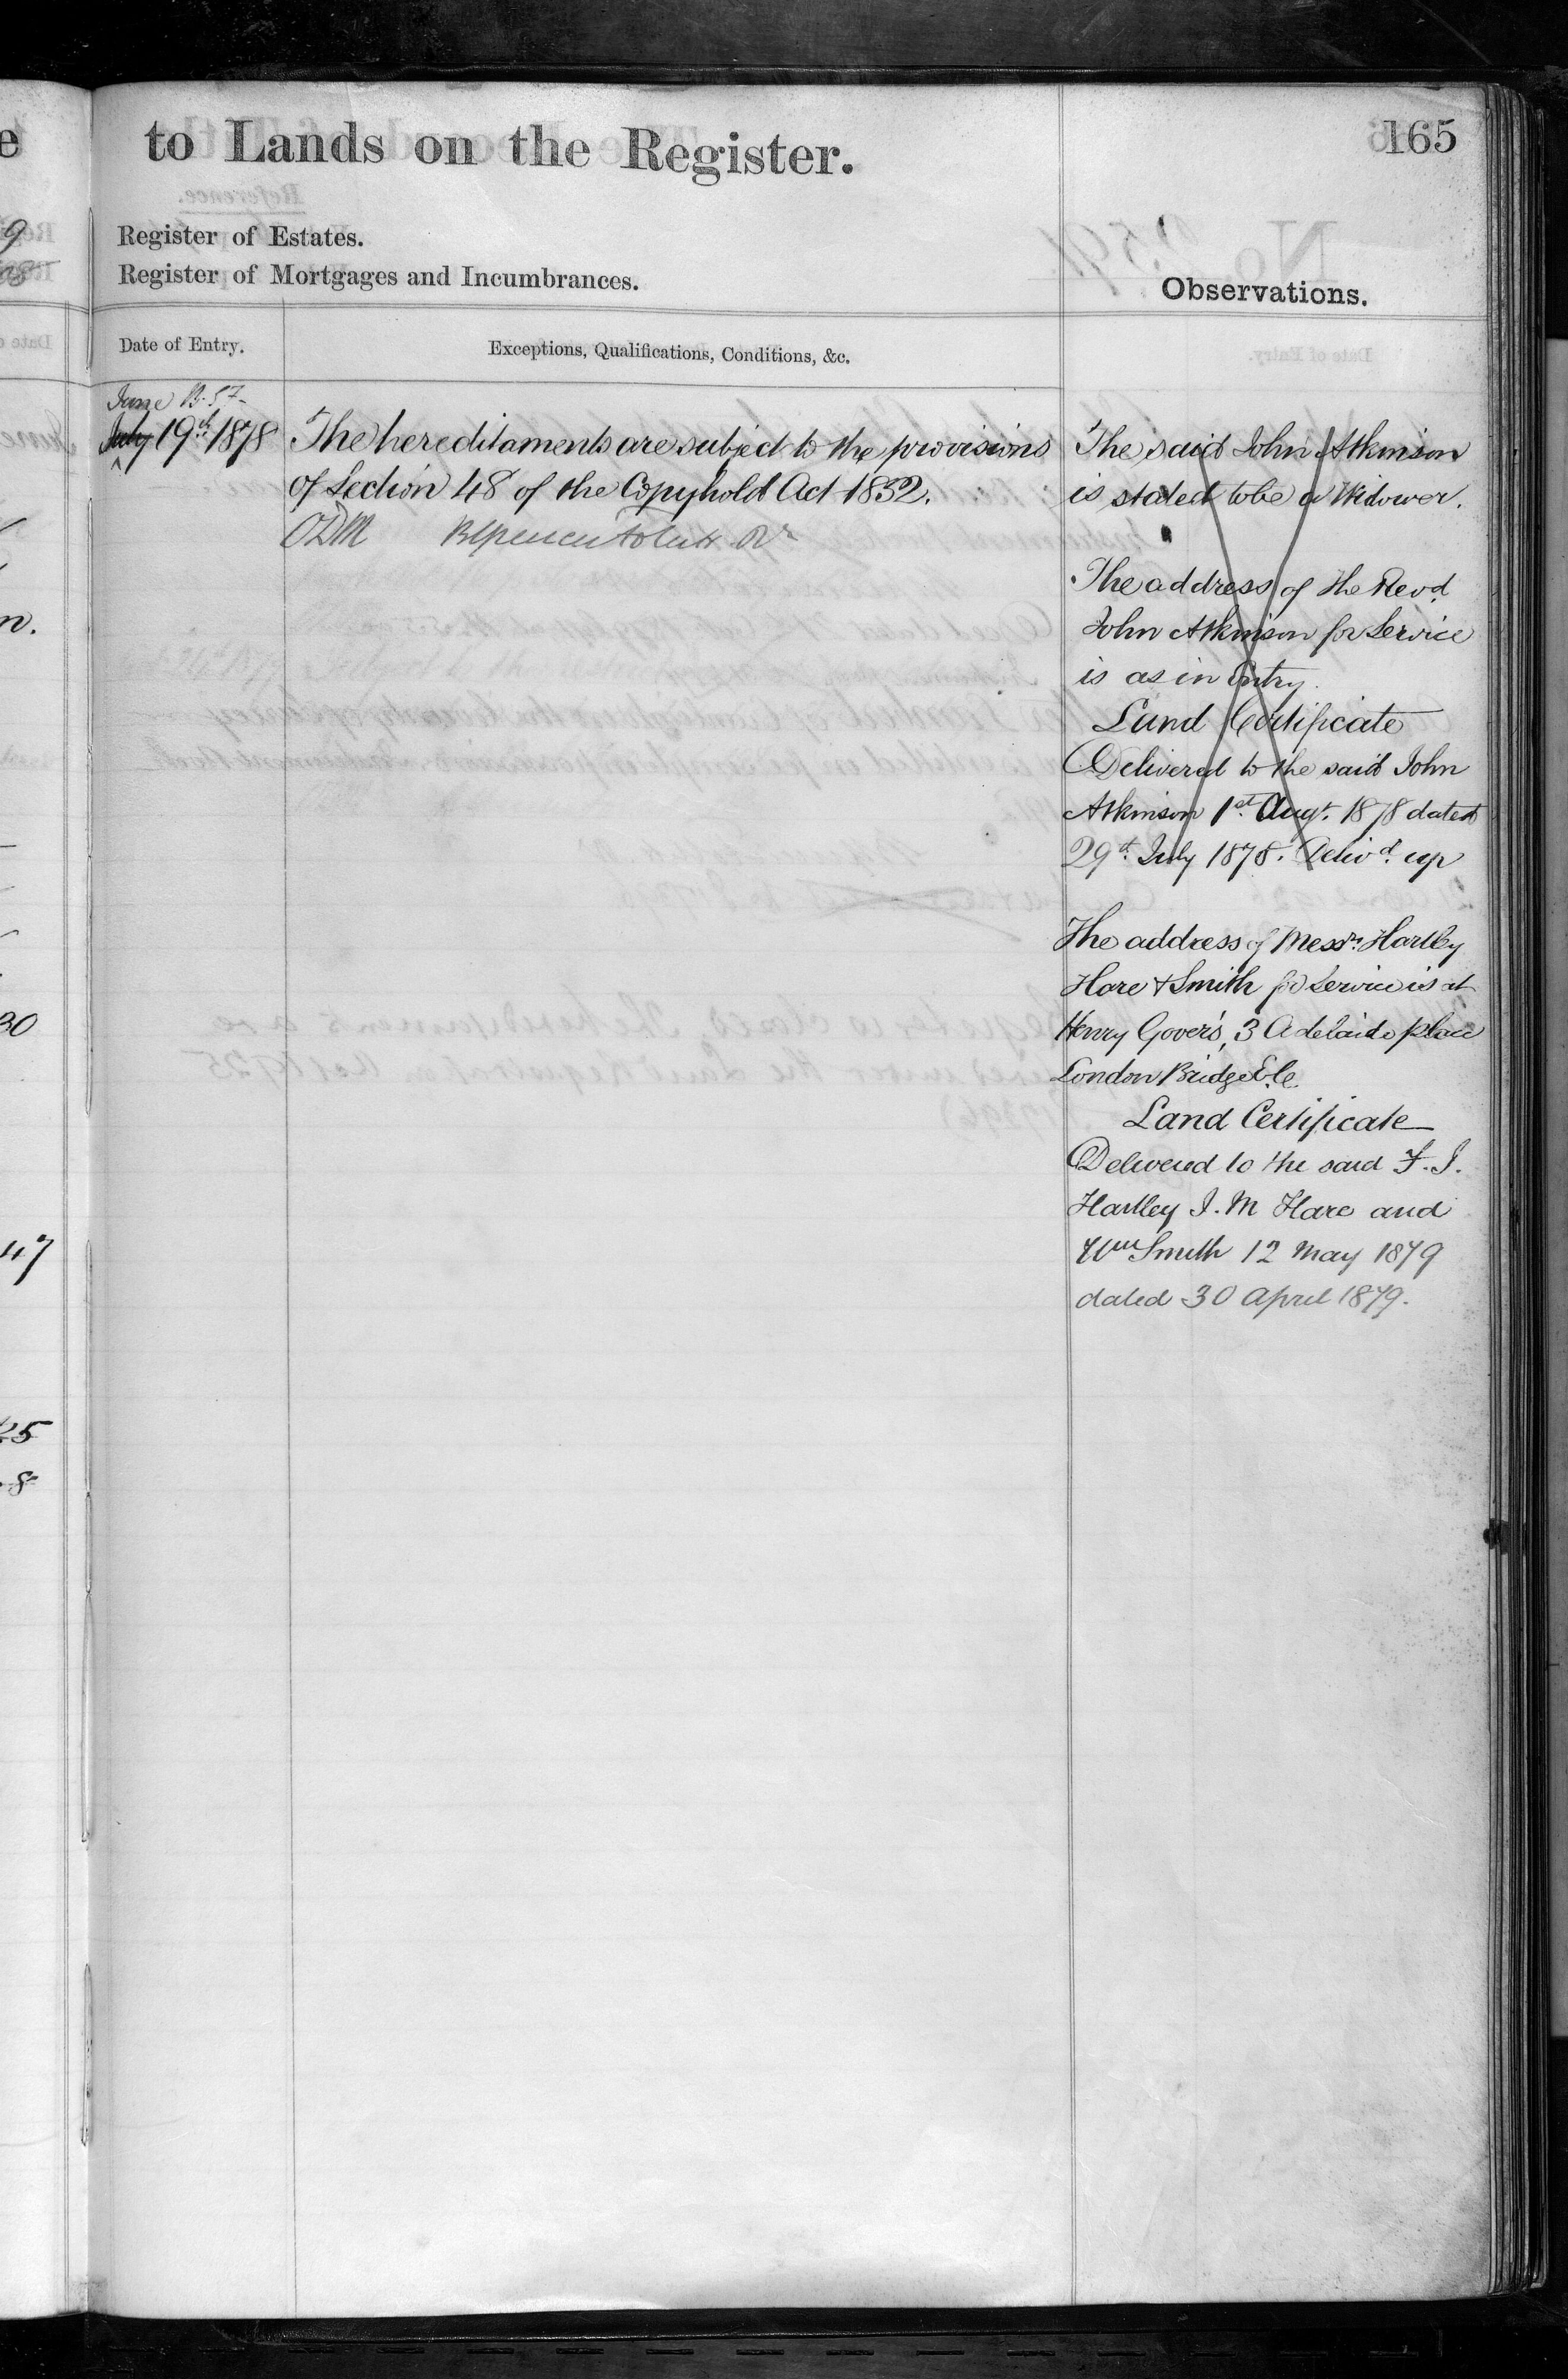 to Lands on the Register.
165
Register of Estates.
Register of Mortgages and Incumbrances.
Observations.
Date of Entry.
Exceptions, Qualifications, Conditions, &c.
June
July 19th 1878
The hereditaments are subject to the provisions
of Section 48 of the Copyhold Act 1852.
The said John Atkinson
is stated to be a Widower.
The address of the Revd.
John Atkinson for Service
is as in Entry.
Land Certificate
Delivered to the said John
Atkinson 1st. Augt. 1878 dated
29th. July 1878. Delivd. up
The address of Messrs. Hartley
Hare & Smith for Service is at
Henry Gover's, 3 Adelaide place
London Bridge E.C.
Land Certificate
Delivered to the said F. J.
Hartley J. M Hare and
Wm Smith 12 May 1879
dated 30 April 1879.